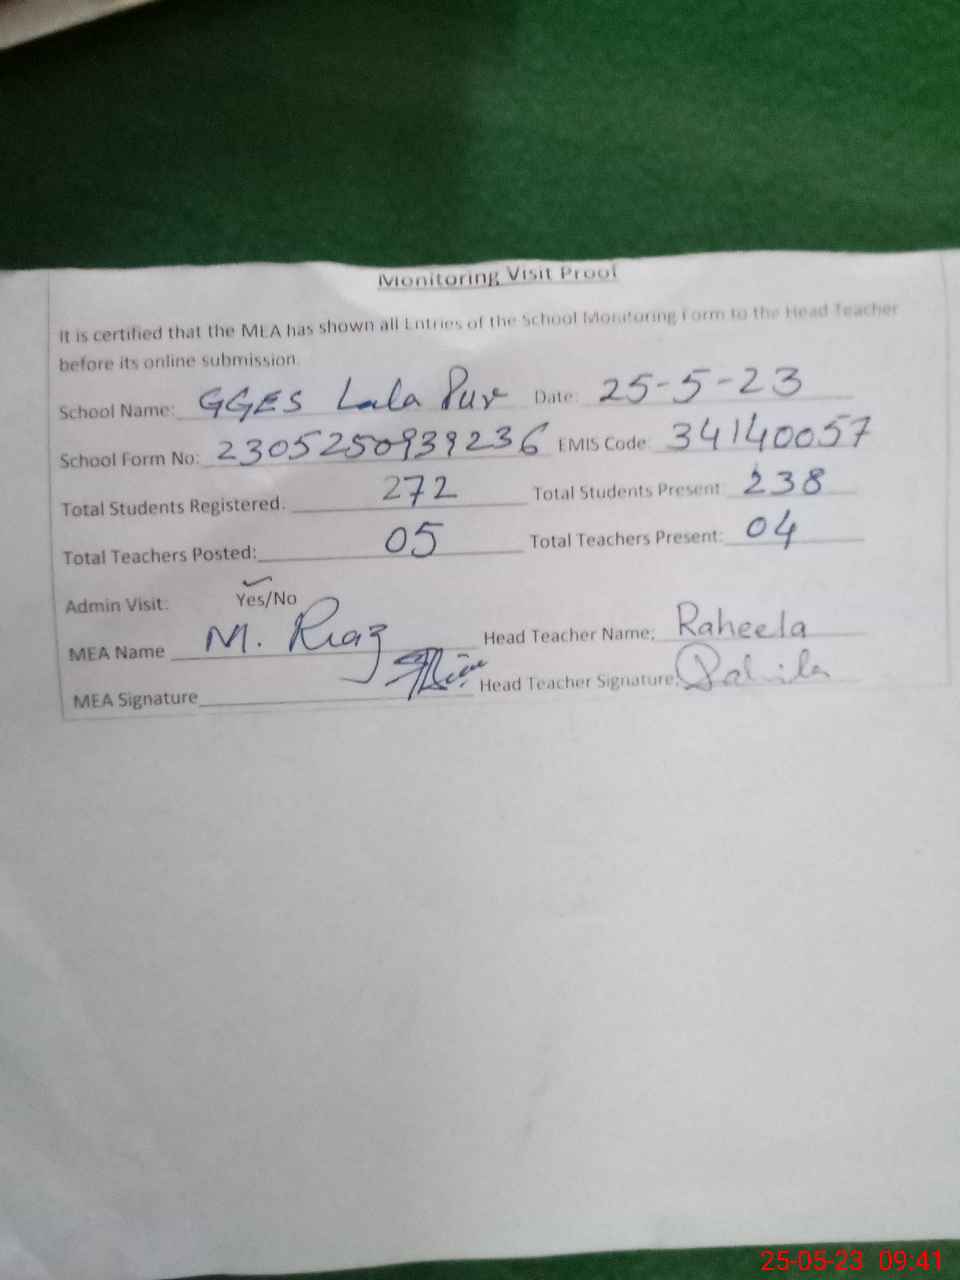 Monitoring Visit Proof
It is certified that the MEA has shown all Entries of the School Monitoring Form to the Head Teacher
before its online submission.
School Name: GGES Lala Pur Date: 25-5-23
School Form No: 2305250939236 EMIS Code: 34140057
Total Students Registered: 272 Total Students Present: 238
Total Teachers Posted: 05 Total Teachers Present: 04
Admin Visit: Yes/No
MEA Name M. Riaz Head Teacher Name: Raheela
MEA Signature Head Teacher Signature:
25-05-23 09:41